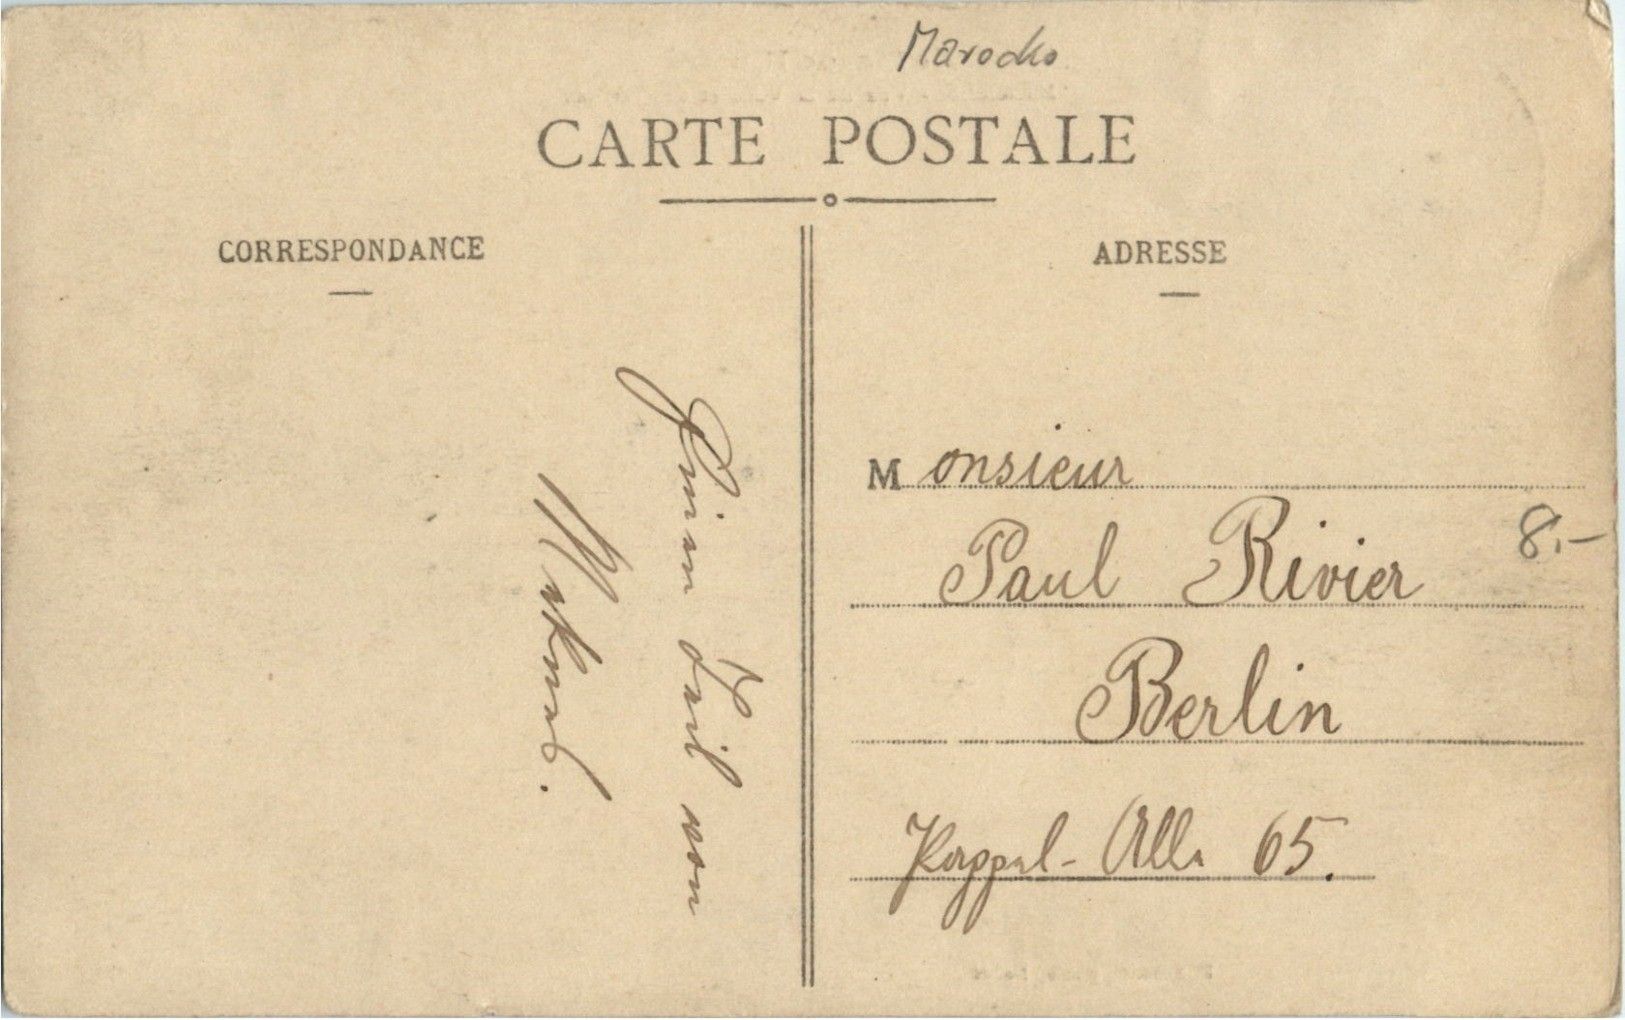 Marocko
CARTE POSTALE
CORRESPONDANCE
ADRESSE
von
Monsieur
Paul Rivier
8.-
Berlin
Kappel-Alle 65.